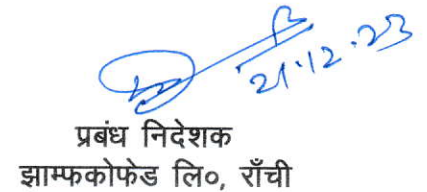 21.12.23
प्रबंध निदेशक
झाम्फकोफेड लि०, राँची